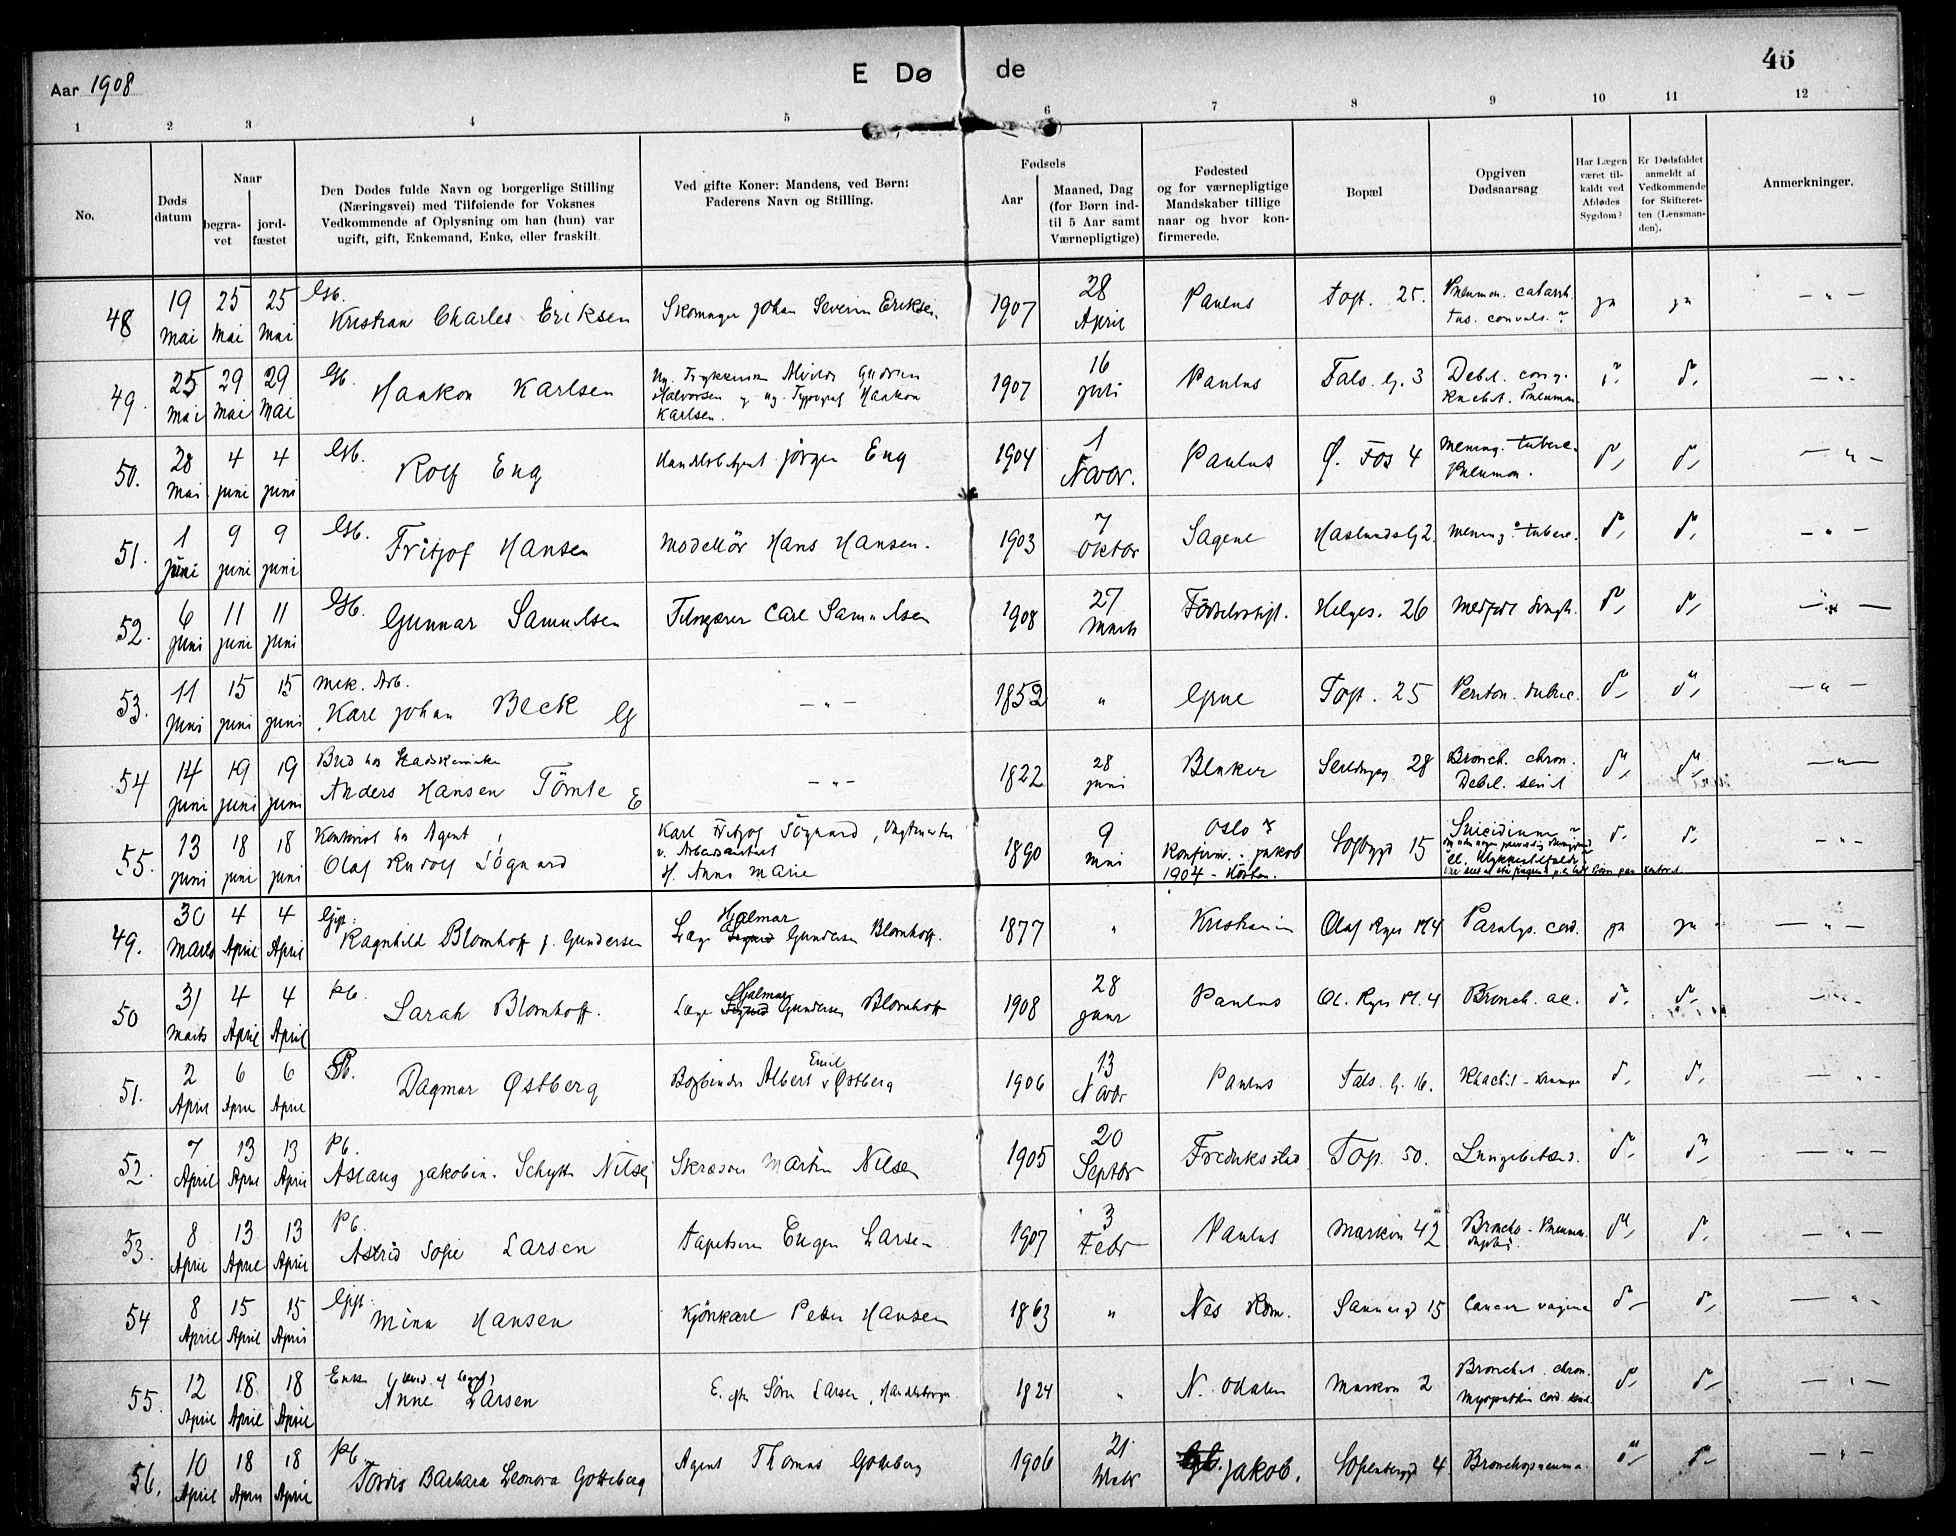 Aar 1908
E Dø de
46
1 2 3 4 5 6 7 8 9 10 11 12
No.
Døds datum
Naar
begra-vet
jord-fæstet
Den Dødes fulde Navn og borgerlige Stilling
(Næringsvei) med Tilføiende for Voksnes
Vedkommende af Oplysning om han (hun) var
ugift, gift, Enkemand, Enke, eller fraskilt.
Ved gifte Koner: Mandens, ved Børn:
Faderens Navn og Stilling.
Fødsels
Aar
Maaned, Dag
(for Børn ind-
til 5 Aar samt
Værnepligtige)
Fødested
og for værnepligtige
Mandskaber tillige
naar og hvor kon-
firmerede.
Bopæl
Opgiven
Dødsaarsag
Har Lægen
været til-
kaldt ved
Afdødes
Sygdom?
Er Dødsfaldet
anmeldt af
Vedkommende
for Skifteret-
ten (Lensman-
den).
Anmerkninger.
48 19 Mai 25 Mai 25 Mai Gb. Kristian Charles Eriksen Skomager Johan Severin Eriksen 1907 28 April Paulus Topt. 25. Pneumon. catarrh. ja ja — " —
49. 25 Mai 29 Mai 29 Mai Gb. Haakon Karlsen Ug. Alvilde Gudrun Halvorsen og ug. Typograf Haakon Karlsen. 1907 16 Juli Paulus Fals. g. 3 Debil. cong. Rachit. Pneumon. do do — " —
50. 28 Mai 4 Juni 4 Juni Gb. Rolf Eng Handelsagent Jörgen Eng 1904 1 Novbr. Paulus Ø. Fos 4 Mening. tuberc. Pneumon. do do — " —
51. 1 Juni 9 Juni 9 Juni Gb. Fritjof Hansen Modellör Hans Hansen. 1903 7 Oktbr Sagene Haslundsg 2. Mening. tuberc. do do — " —
52. 6 Juni 11 Juni 11 Juni Gb. Gunnar Samuelsen Carl Samuelsen 1908 27 Marts Födselsstift. Helges. 26 Medfödt do do — " —
53. 11 Juni 15 Juni 15 Juni Mek. Arb. Karl Johan Beck G — " — 1852 " Grue Topt. 25 Periton. tuberc. do do — " —
54 14 Juni 19 Juni 19 Juni Anders Hansen Tömte E — " — 1822 28 Juni Blaker 28 Bronch. chron. Debil. senil do do — " —
55. 13 Juni 18 Juni 18 Juni Kontorist hos Agent, Olaf Rudolf Sögaard Karl Fritjof Sögaard, Vagtmester v. H. Anna Marie 1890 9 Mai Oslo Konfirm. Jakob 1904 - Hösten. 15 Suicidium do do — " —
49. 30 Marts 4 April 4 April Gift. Ragnhild Blomhoff f. Gundersen Læge Hjalmar Gundersen Blomhoff. 1877 " Kristiania Olaf Ryes Pl 4 Paralys. cord. ja ja — " —
50 31 Marts 4 April 4 April Pb. Sarah Blomhoff. Læge Hjalmar Gundersen Blomhoff 1908 28 Janr Paulus Ol. Ryes Pl. 4 Bronch. ac. do do — " —
51. 2 April 6 April 6 April Pb. Dagmar Østberg Bogbinder Albert Emil Østberg 1906 13 Novbr Paulus Fals. g. 16. Rhachit - do do — " —
52. 7 April 13 April 13 April Pb. Aslaug Jakobin. Schytte Nilsen Skræder Martin Nilsen 1905 20 Septbr Fredriksstad Topt. 50. Lungebetænd. do do — " —
53. 8 April 13 April 13 April Pb. Astrid Sofie Larsen Tapetserer Eugen Larsen 1907 3 Febr Paulus Markvn 42 Broncho - Pneumon. duplex. do do — " —
54 8 April 15 April 15 April Gift. Mina Hansen Kjörekarl Peter Hansen 1863 " Nes Rom. Sannergd 15 Cancer vagina do do — " —
55. 12 April 18 April 18 April Enke Anne Larsen E. efter Sören Larsen, 1824 " N. Odalen Markvn 2 Bronchit chron. Myopathia cord. senil. do do — " —
56. 10 April 18 April 18 April Pb Tordis Barbara Leonora Gotteberg Agent Thomas Gotteberg 1906 21 Jakob. Sofienbergd 4 Bronchopneumon. do do — " —